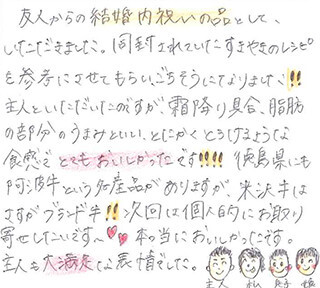 友人からの結婚内祝いの品として、
いただきました。同封されていたすきやきのレシピ
を参考にさせてもらい、ごちそうになりました!!
主人といただいたのですが、霜降り具合、脂肪
の部分のうまみといい、とにかくとろけるような
食感でとてもおいしかったです!!!! 徳島県にも
阿波牛という名産品がありますが、米沢牛は
さすがブランド牛!! 次回は個人的にお取り
寄せしたいです〜♥♥ 本当においしかったです。
主人も大満足な表情でした。
主人 私 息子 娘